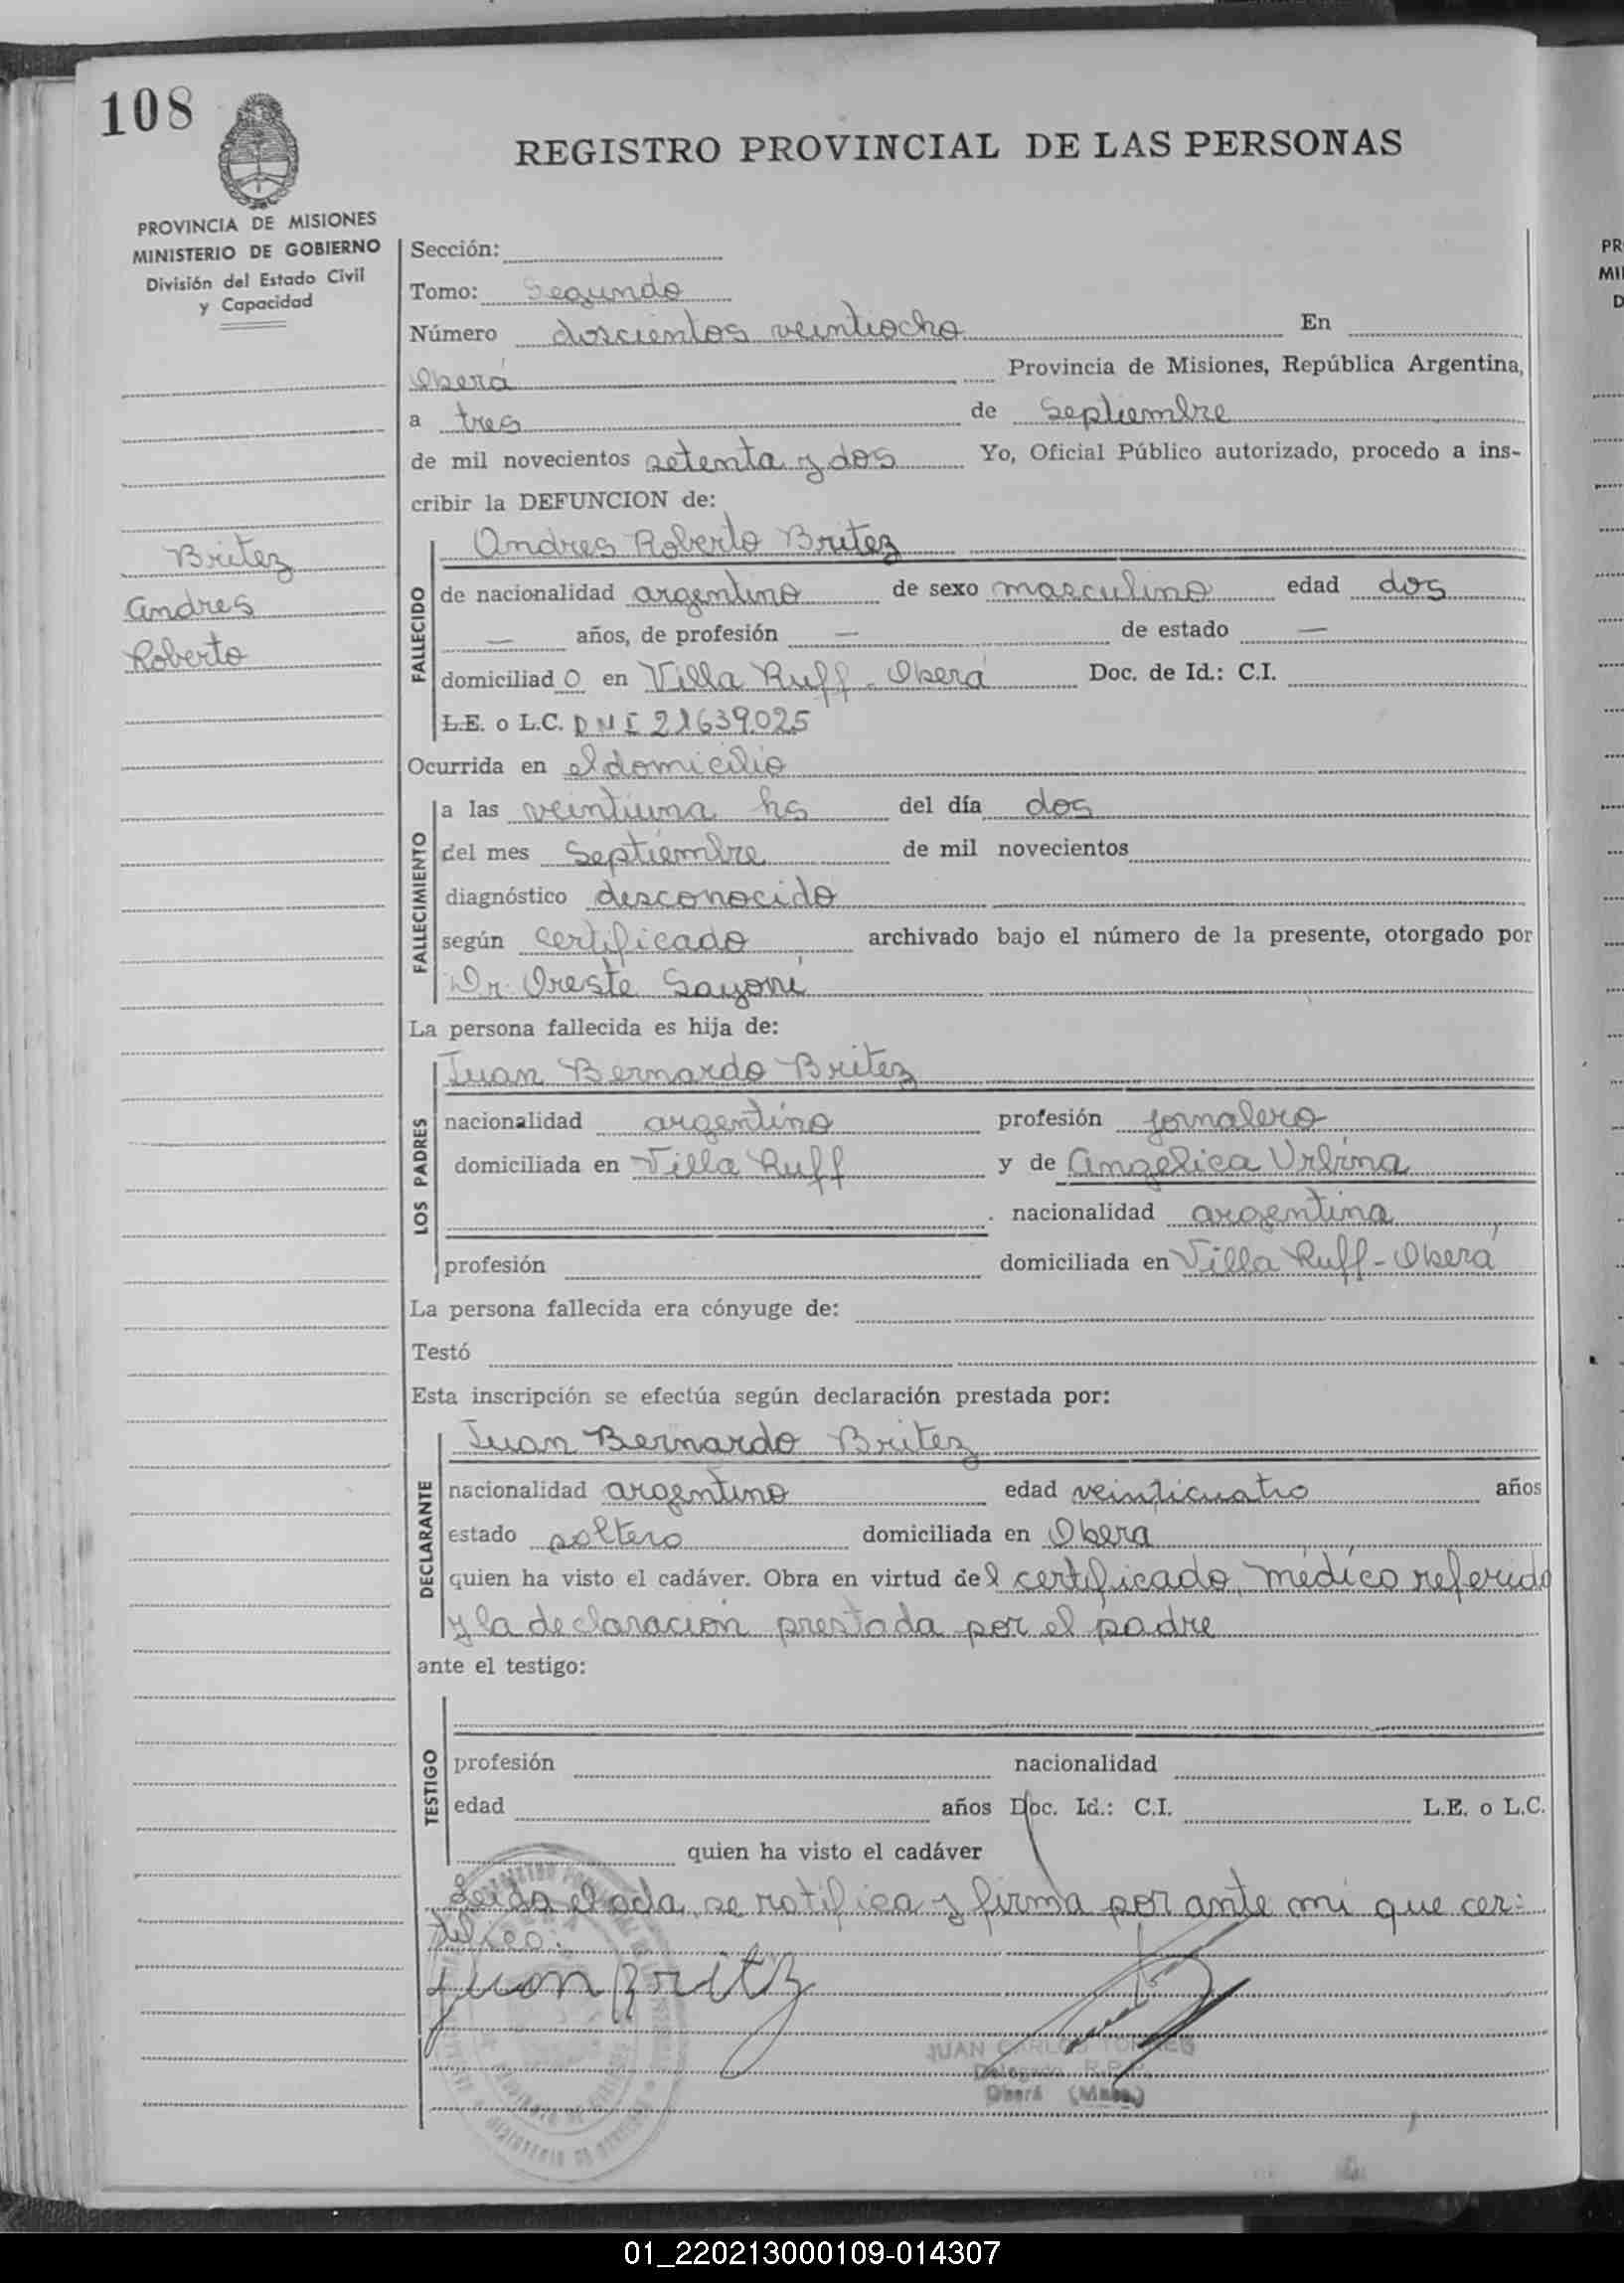 108
REGISTRO PROVINCIAL DE LAS PERSONAS
PROVINCIA DE MISIONES
MINISTERIO DE GOBIERNO
División del Estado Civil
y Capacidad
Britez
Andres
Roberto
Sección:
Tomo: Segundo
Número doscientos veintiocho En
Oberá Provincia de Misiones, República Argentina,
a tres de Septiembre
de mil novecientos setenta y dos Yo, Oficial Público autorizado, procedo a ins-
cribir la DEFUNCION de:
FALLECIDO
Andres Roberto Britez
de nacionalidad argentino de sexo masculino edad dos
— años, de profesión — de estado —
domiciliado en Villa Ruff - Oberá Doc. de Id.: C.I.
L.E. o L.C. DNI 21639.025
Ocurrida en el domicilio
FALLECIMIENTO
a las veintiuna hs del día dos
del mes Septiembre de mil novecientos
diagnóstico desconocido
según certificado archivado bajo el número de la presente, otorgado por
Dr. Oreste
La persona fallecida es hija de:
LOS PADRES
Juan Bernardo Britez
nacionalidad argentino profesión jornalero
domiciliada en Villa Ruff y de Angelica Urbina
nacionalidad argentina
profesión domiciliada en Villa Ruff - Oberá
La persona fallecida era cónyuge de:
Testó
Esta inscripción se efectúa según declaración prestada por:
DECLARANTE
Juan Bernardo Britez
nacionalidad argentino edad veinticuatro años
estado soltero domiciliada en Obera
quien ha visto el cadáver. Obra en virtud del certificado médico referido
y la declaración prestada por el padre
ante el testigo:
TESTIGO
profesión nacionalidad
edad años Doc. Id.: C.I. L.E. o L.C.
quien ha visto el cadáver
Leida el acta, se ratifica y firma por ante mi que cer-
tifico:
Juan Britz
JUAN CARLOS TORRES
Delegado R.P.P.
Oberá (Mnes.)
01_220213000109-014307